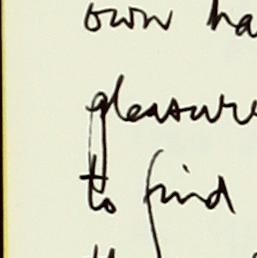 own ha
pleasure
to find